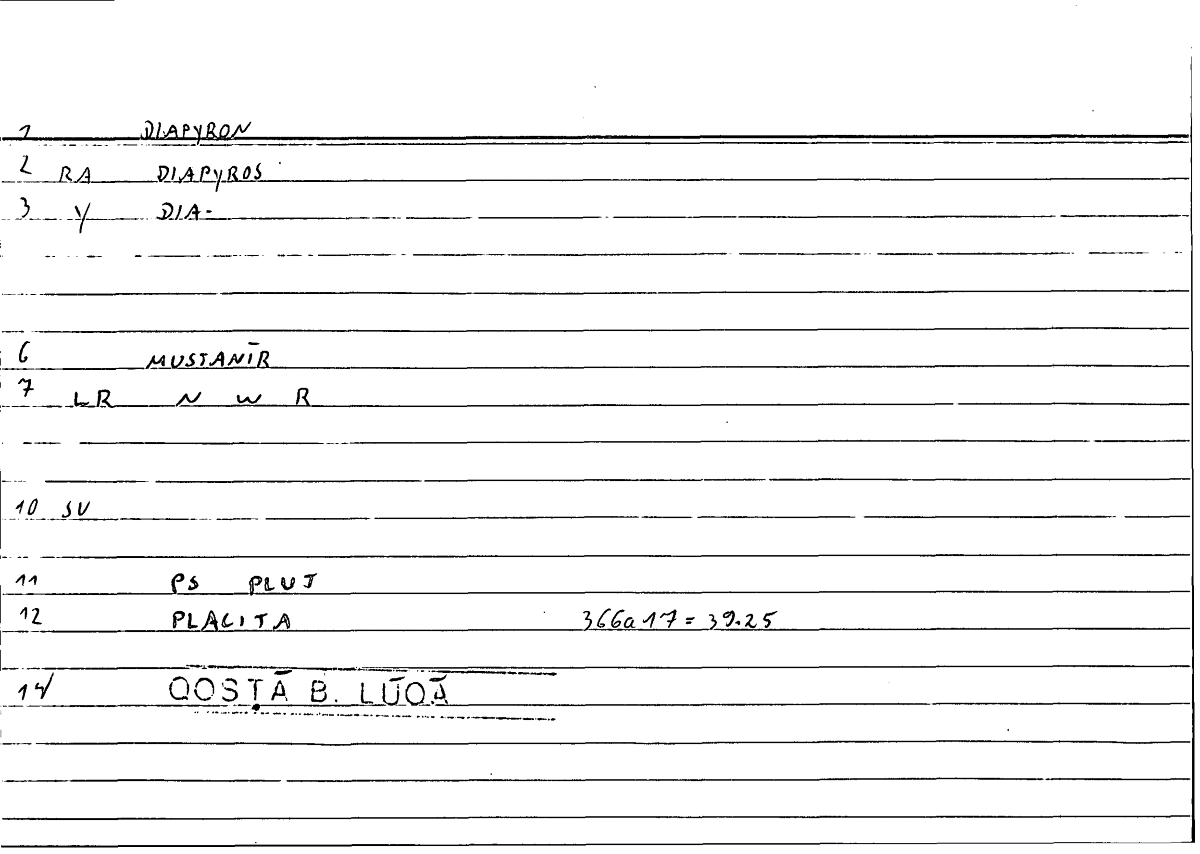 1 DIAPYRON
2 RA DIAPYROS
3 Y DIA-
6 MUSTANĪR
7 LR N W R
10 SV
11 PS PLUT
12 PLACITA 366a17=39.25
14 QOSṬĀ B. LŪQĀ